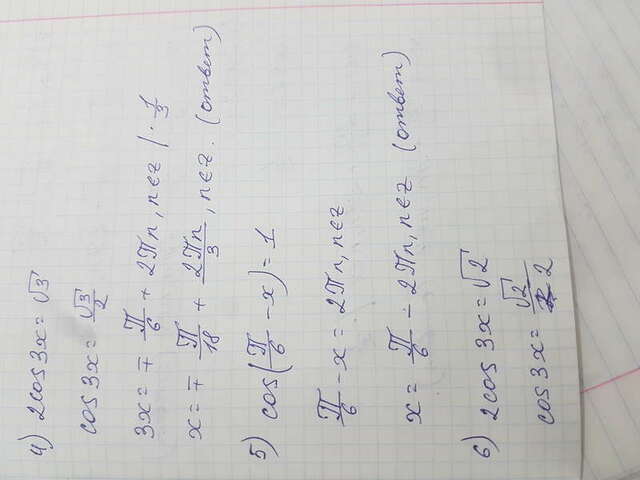 4) 2cos3x = √3
cos3x = √3/2
3x = ∓ π/6 + 2πn, n∈z | · 1/3
x = ∓ π/18 + 2πn/3, n∈z. (ответ)
5) cos(π/6 - x) = 1
π/6 - x = 2πn, n∈z
x = π/6 - 2πn, n∈z (ответ)
6) 2cos3x = √2
cos3x = √2/2